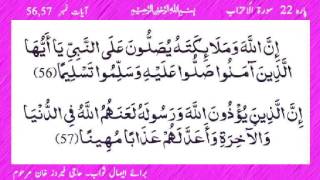 پارہ 22 سورۃ الاحزاب
بِسْمِ اللهِ الرَّحْمٰنِ الرَّحِيْمِ
آیات نمبر 56,57
إِنَّ اللَّهَ وَمَلَائِكَتَهُ يُصَلُّونَ عَلَى النَّبِيِّ يَا أَيُّهَا
الَّذِينَ آمَنُوا صَلُّوا عَلَيْهِ وَسَلِّمُوا تَسْلِيمًا (56)
إِنَّ الَّذِينَ يُؤْذُونَ اللَّهَ وَرَسُولَهُ لَعَنَهُمُ اللَّهُ فِي الدُّنْيَا
وَالْآخِرَةِ وَأَعَدَّ لَهُمْ عَذَابًا مُهِينًا (57)
برائے ایصال ثواب۔ حاجی فیروز خان مرحوم